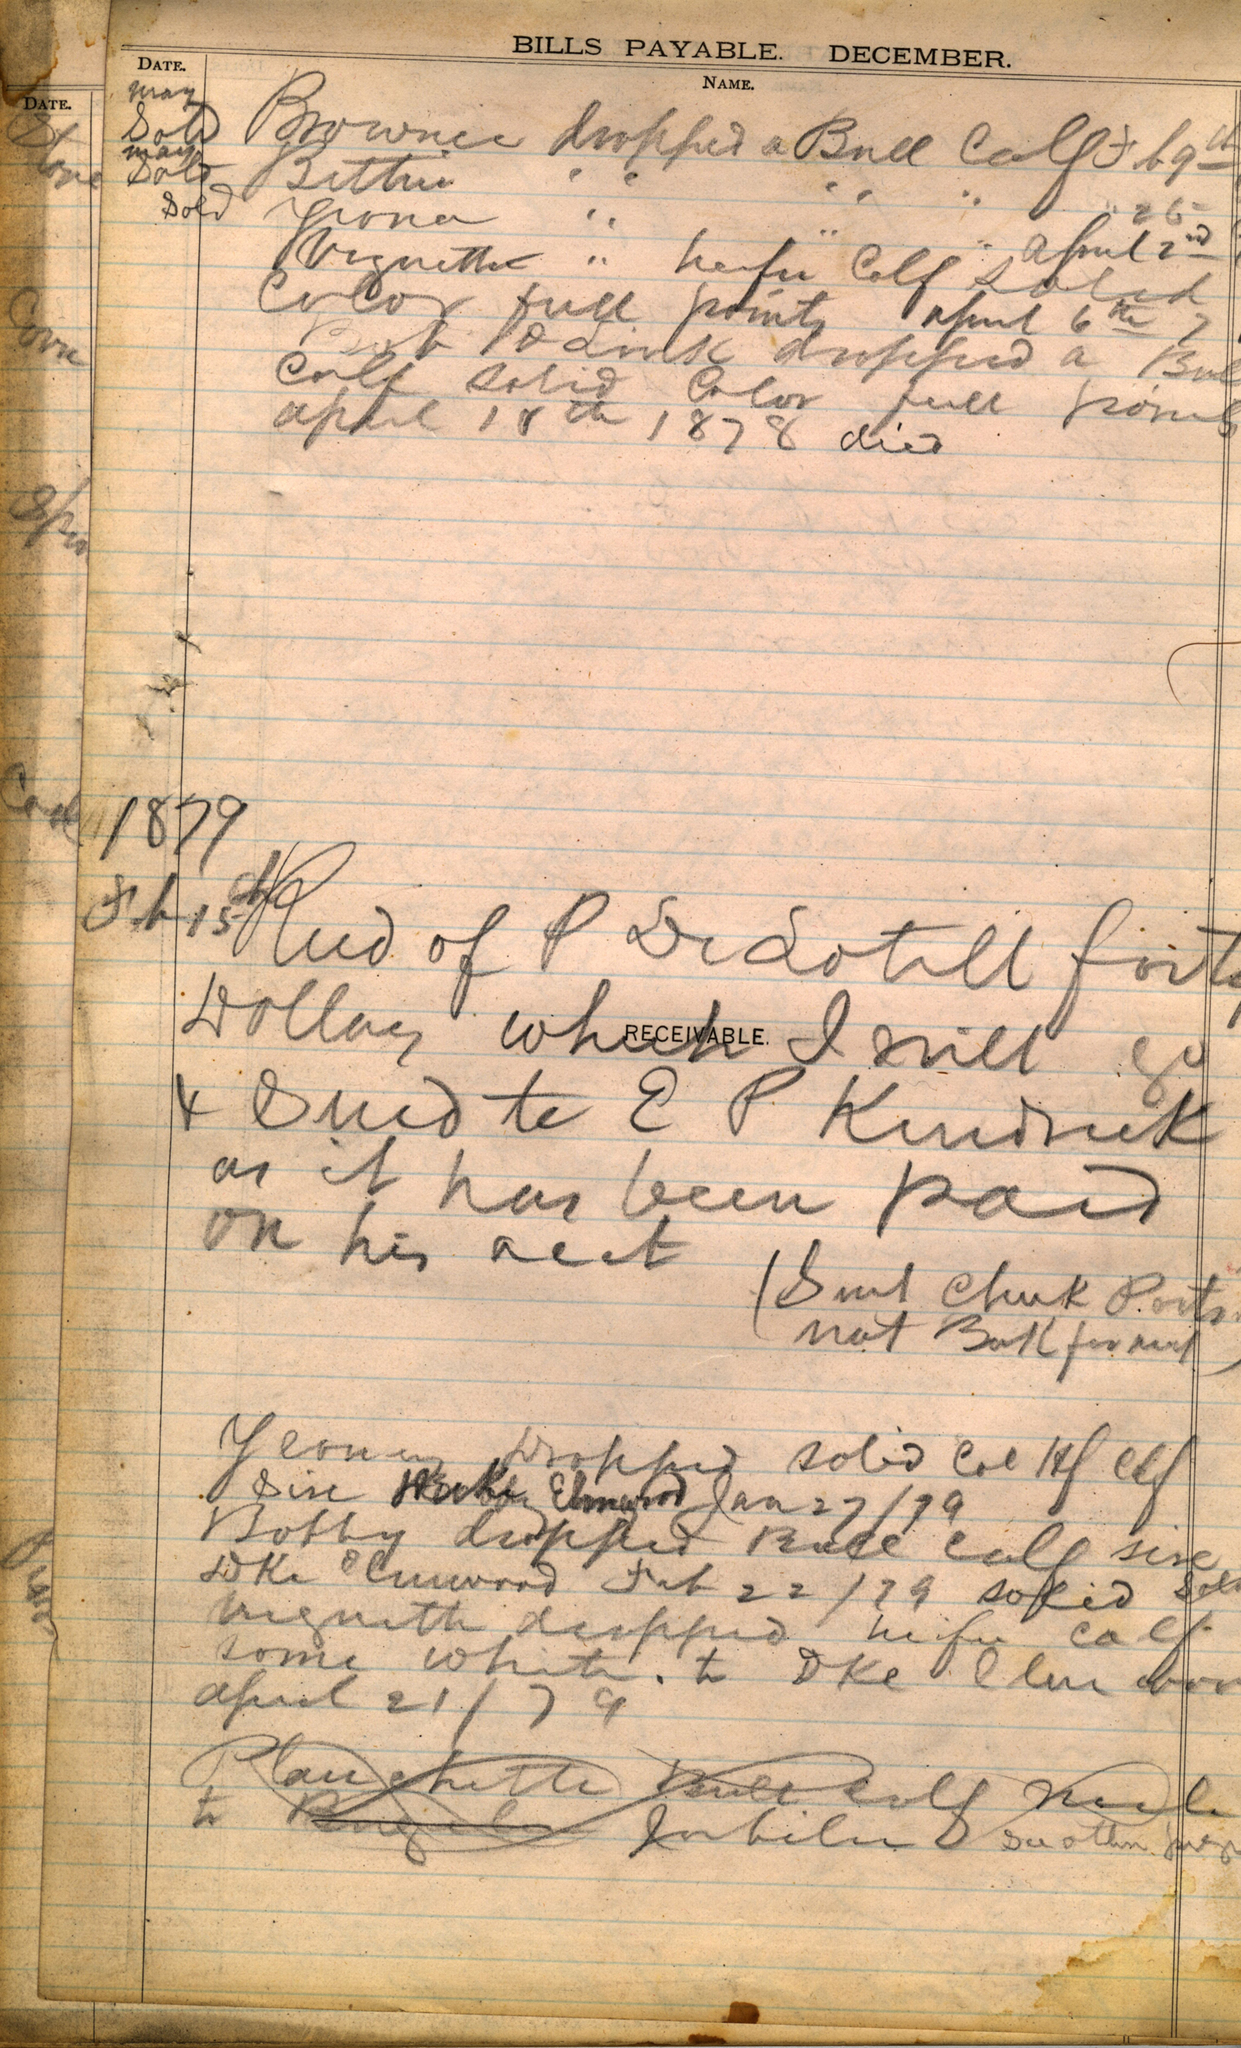 BILLS PAYABLE. DECEMBER.
DATE.
NAME.
DATE.
may
Sold Brownie dropped a Bull Calf Feb 9th
may
Sold Bettie " " " " " 26
Sold " " " " April 2nd
Vignette " heifer Calf Solid
Color full points April 6th
dropped a Bull
Calf solid Color full points
april 18th 1878 died
Corn
1879
Feb 15th Recd of P forty
Dollars which I will go
RECEIVABLE.
& Send to E P Kendrick
as it has been paid
on his acct
(Sent Check Ports
nat Bank for next)
dropped solid Col Hf Clf
Sire Duke Elmwood Jan 27/79
Bobby dropped Bull Calf sire
Dke Elmwood Feb 22/79 solid Sold
vignette dropped heifer calf
some white. to Dke Elmwood
april 21/79
Planchette Bull Calf
to Jubilee See other page